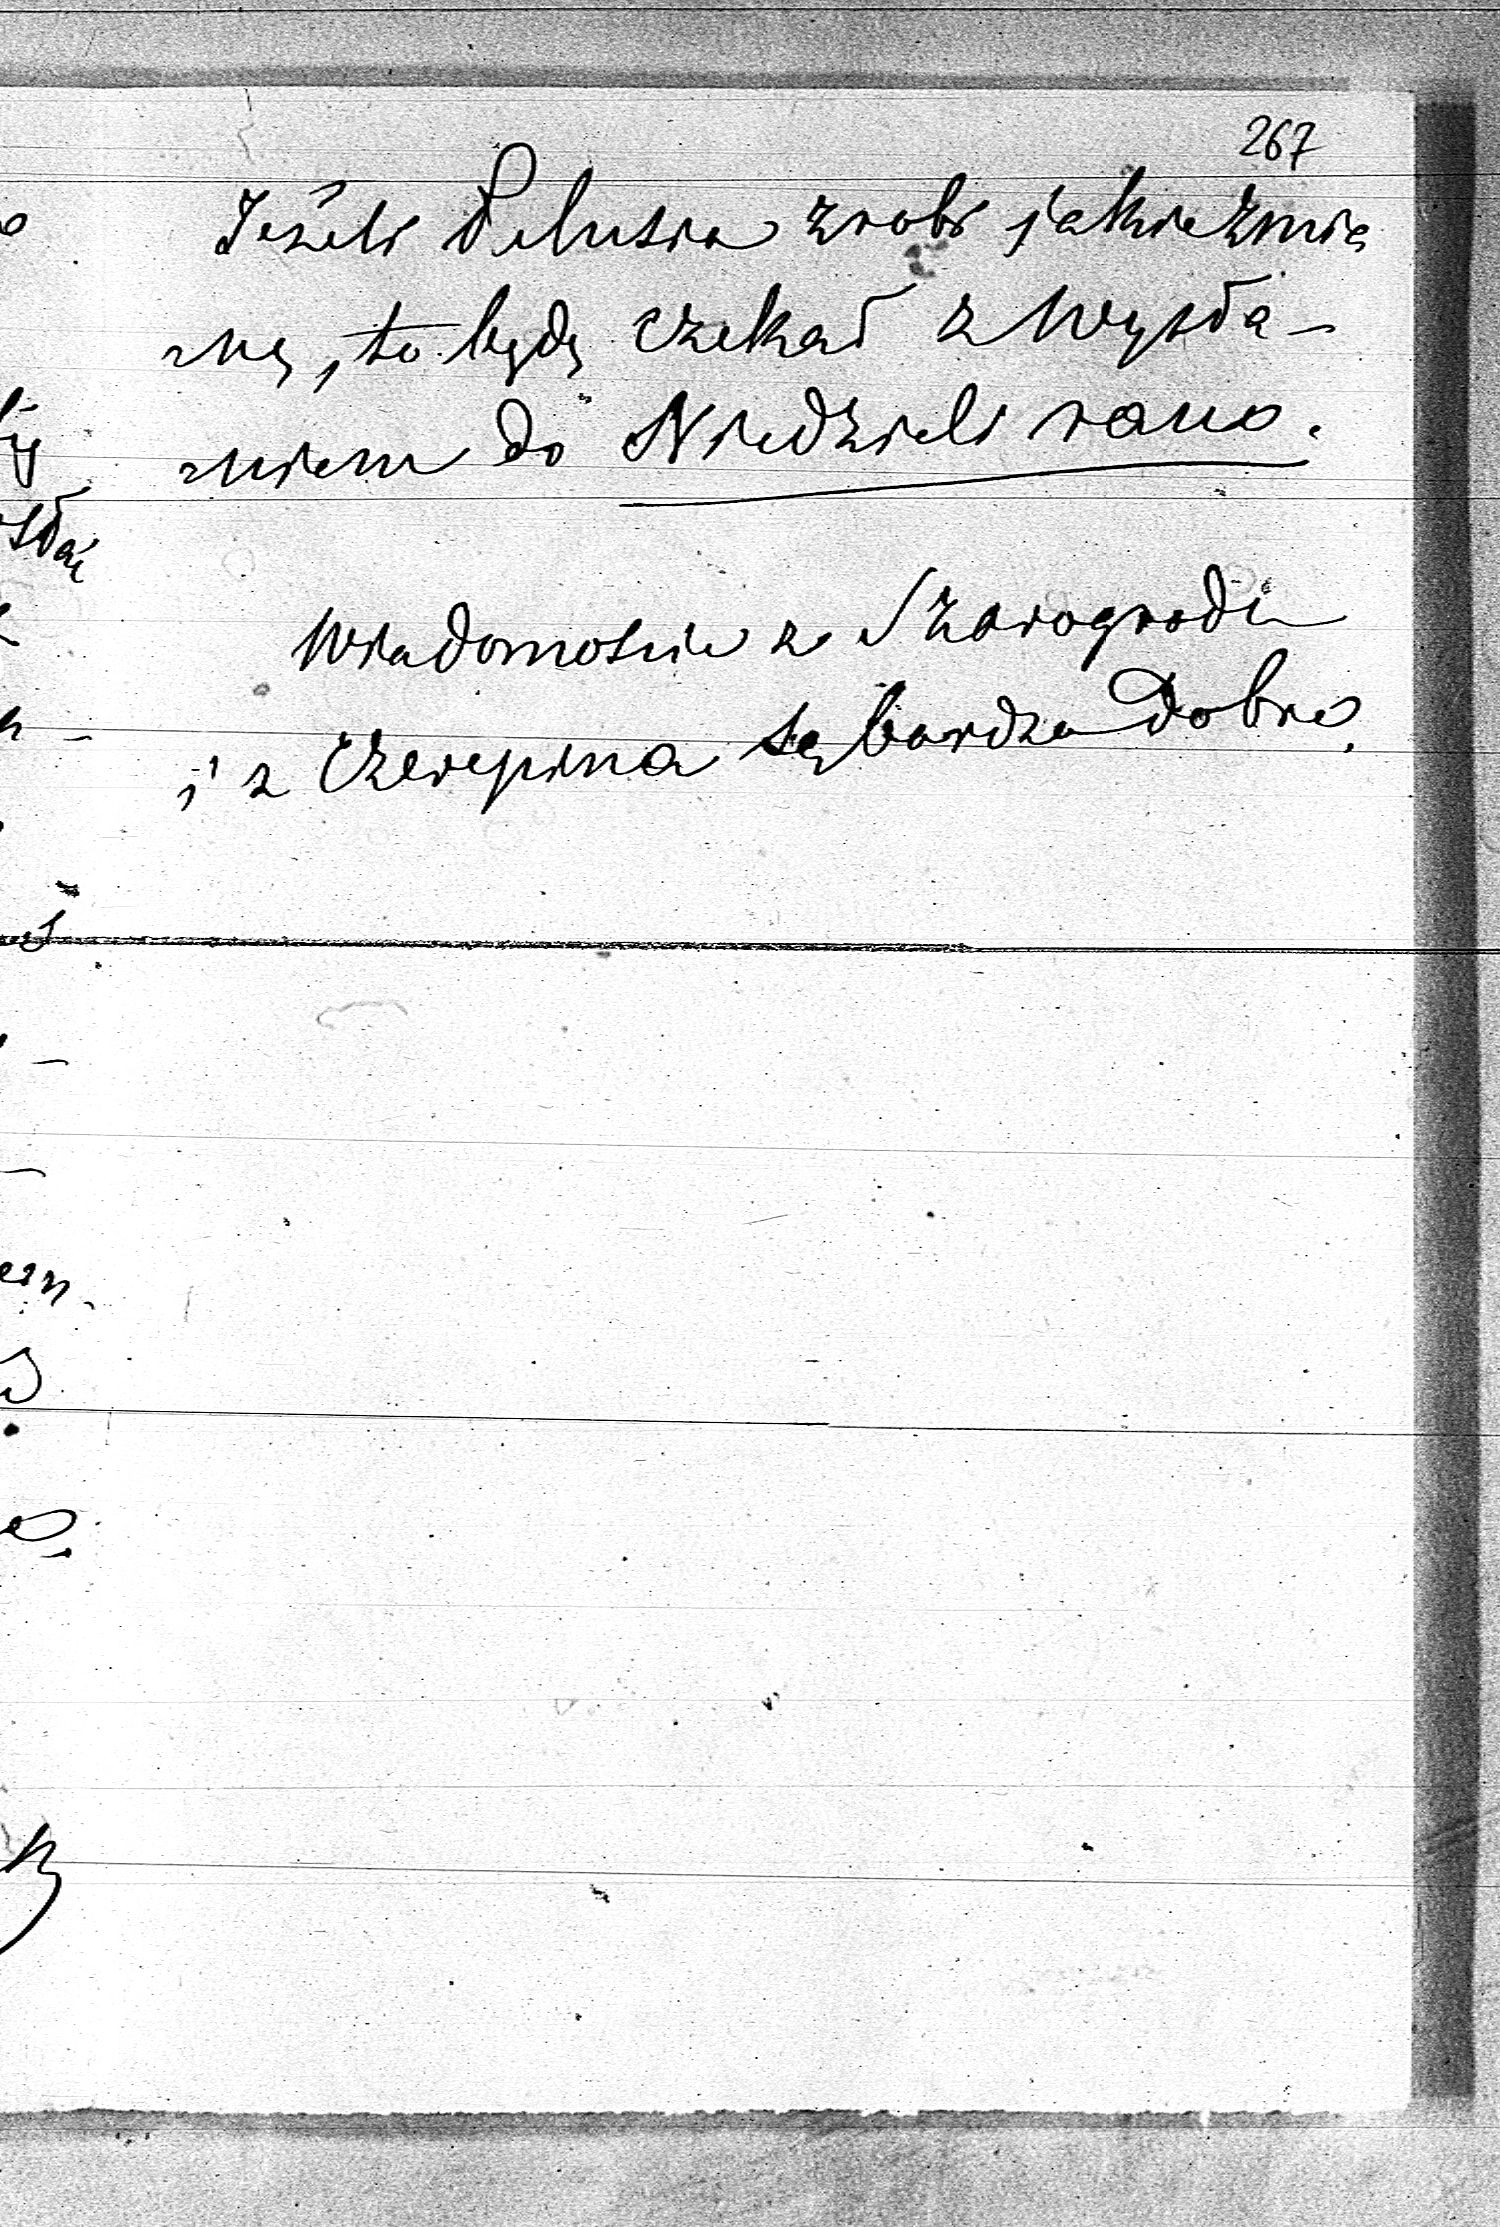 267
Jeżeli Pelusia zrobi jakie zmia
ny, to będę czekał z wysła-
niem do Niedzieli rano.
Wiadomoście z Szarogrodu
i z Czerepina są bardzo dobre.